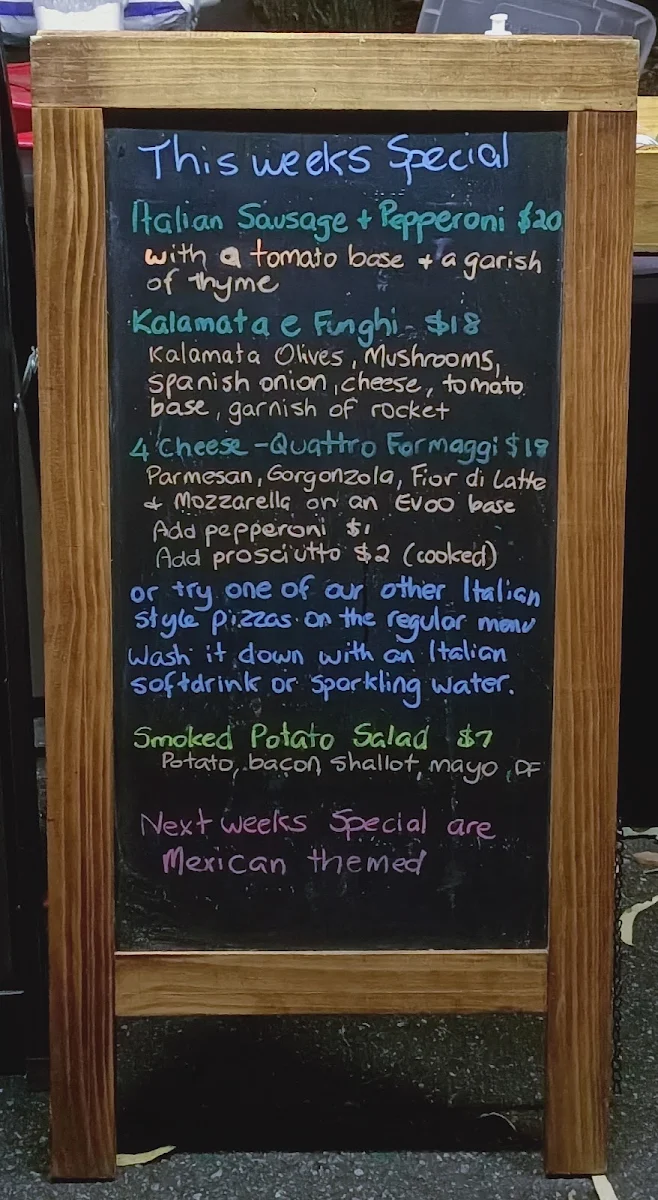 This weeks Special
Italian Sausage + Pepperoni $20
with a tomato base + a garish
of thyme
Kalamata e Funghi - $18
Kalamata Olives, Mushrooms,
spanish onion, cheese, tomato
base, garnish of rocket
4 Cheese - Quattro Formaggi $18
Parmesan, Gorgonzola, Fior di Latte
& Mozzarella on an EVOO base
Add pepperoni $1
Add prosciutto $2 (cooked)
or try one of our other Italian
style pizzas on the regular menu
Wash it down with an Italian
softdrink or sparkling water.
Smoked Potato Salad $7
Potato, bacon, shallot, mayo, DF
Next weeks Special are
Mexican themed